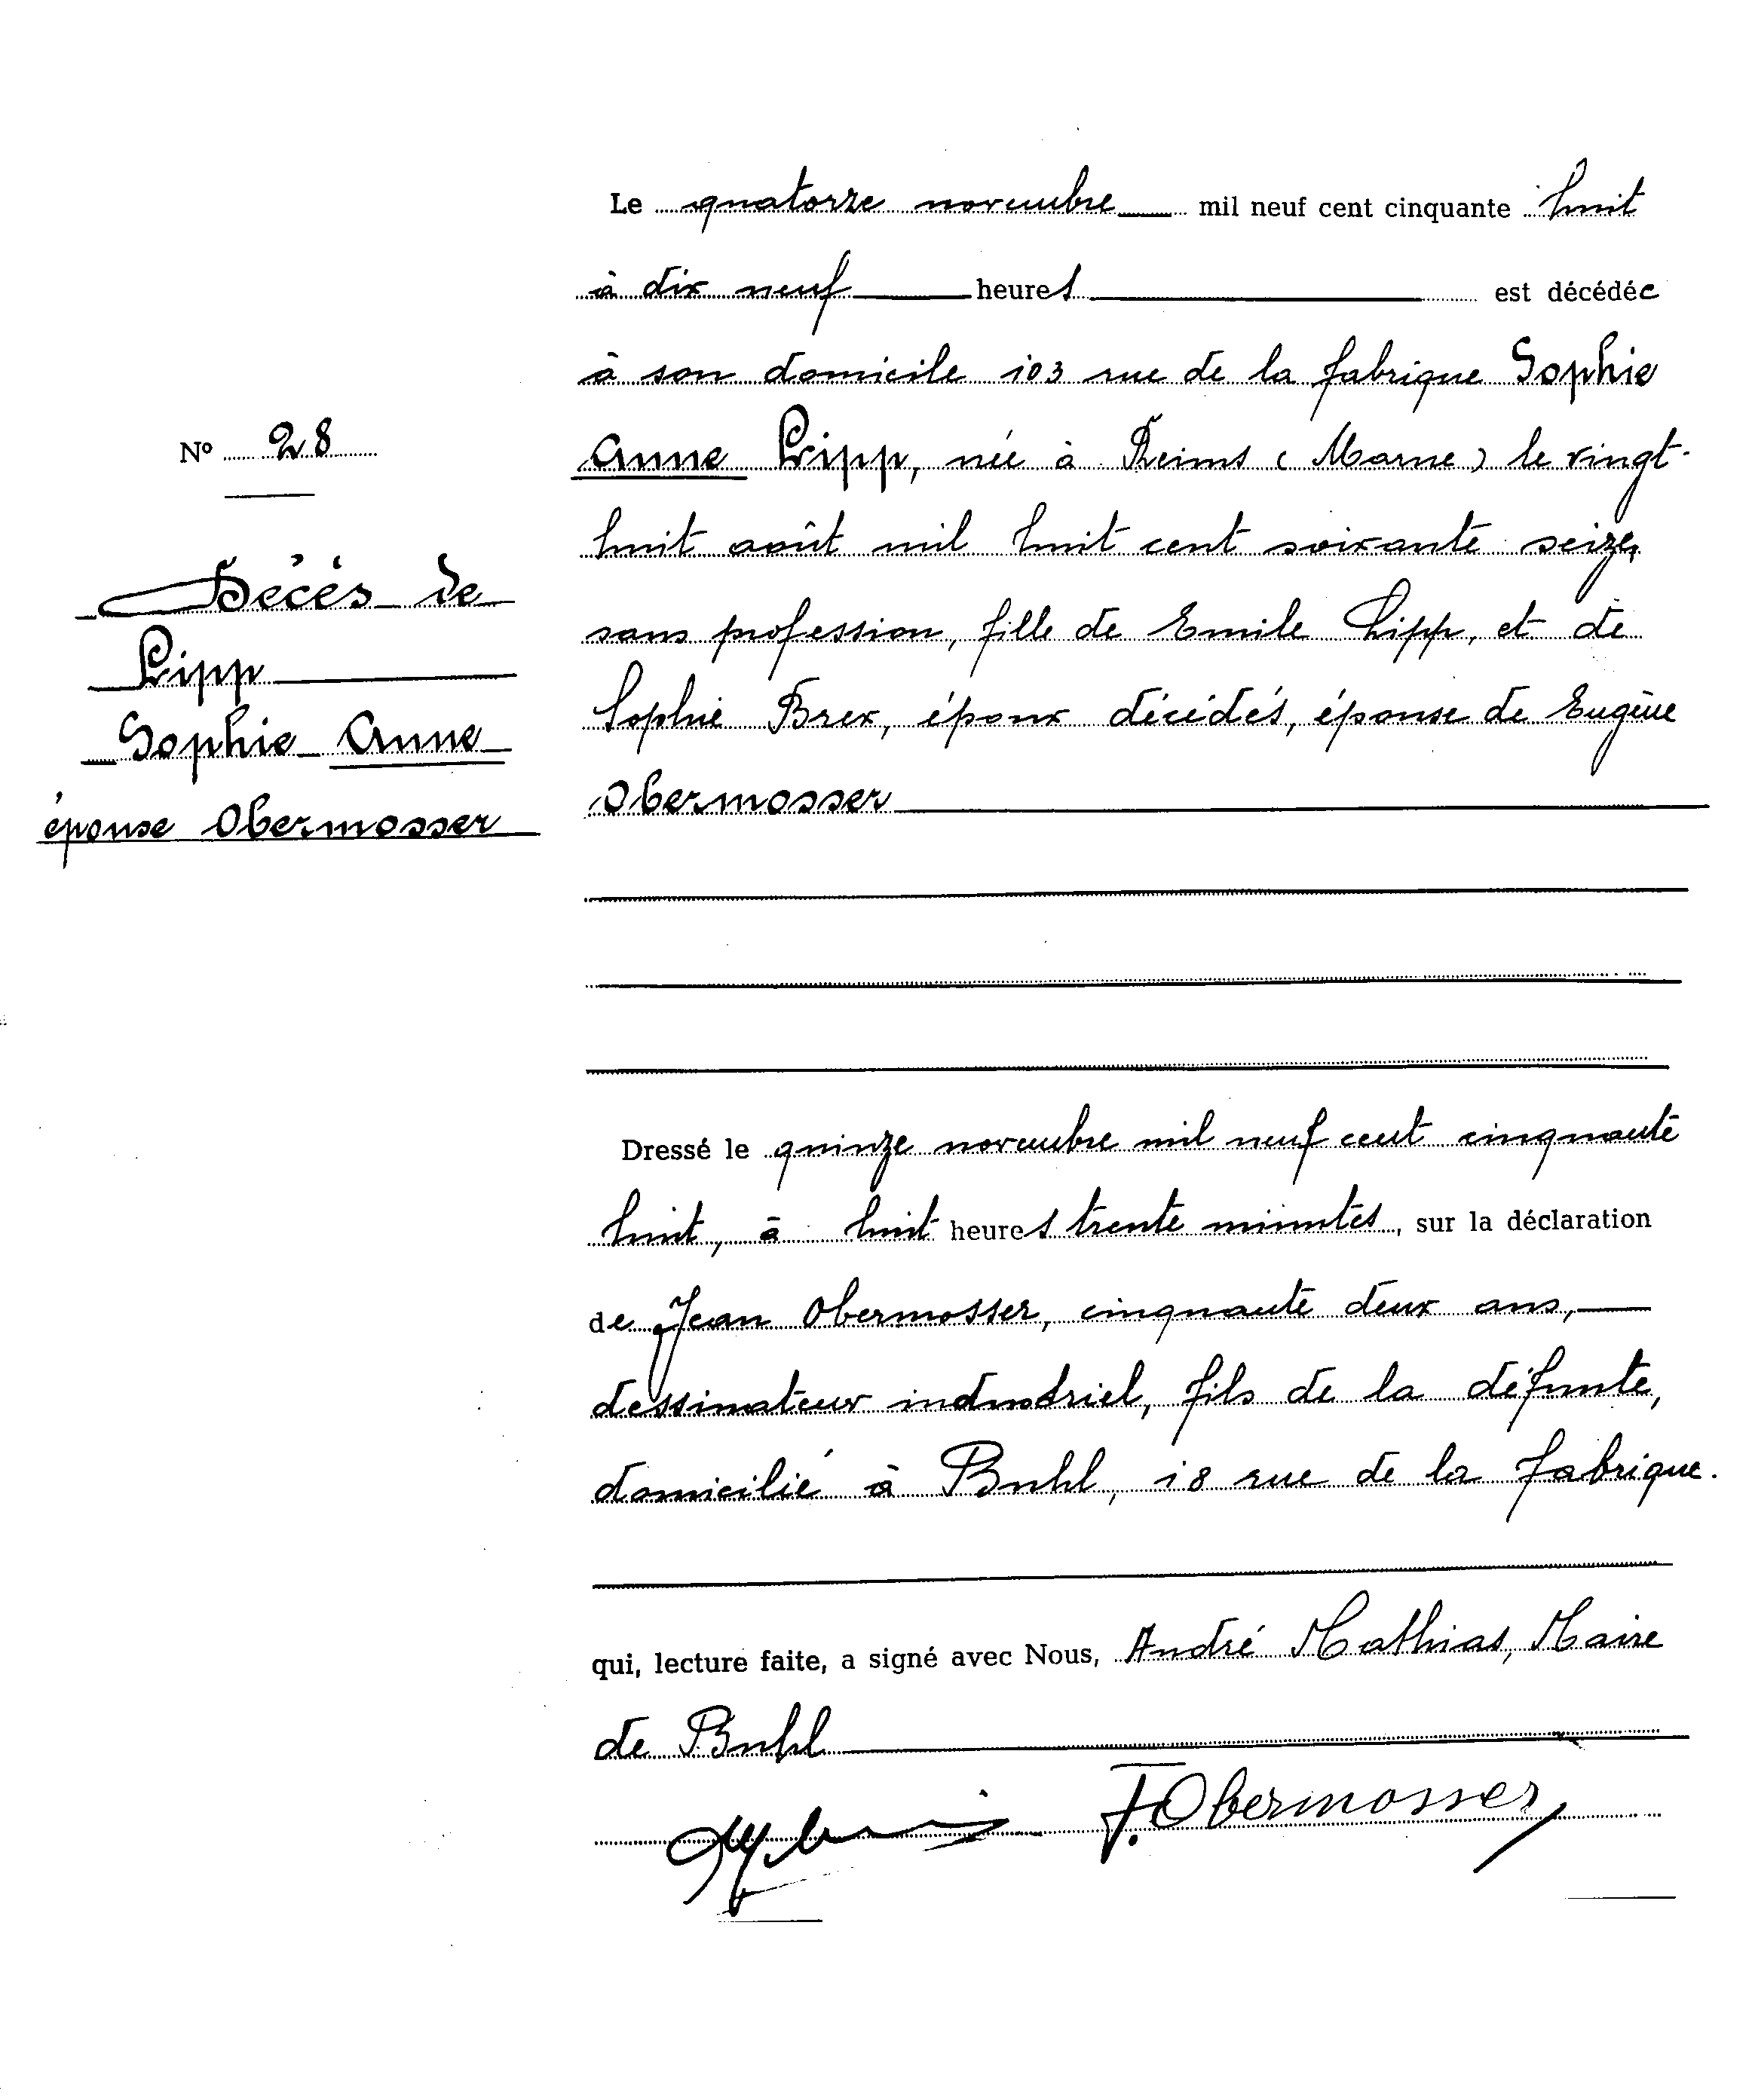 Le quatorze novembre mil neuf cent cinquante huit
à dix neuf heures est décédée
à son domicile 103 rue de la fabrique Sophie
Anne Lipp, née à Reims (Marne) le vingt-
huit août mil huit cent soixante seize,
sans profession, fille de Emile Lipp, et de
Sophie Brex, époux décédés, épouse de Eugène
Obermosser
N° 28
Décès de
Lipp
Sophie Anne
épouse Obermosser
Dressé le quinze novembre mil neuf cent cinquante
huit, à huit heures trente minutes, sur la déclaration
de Jean Obermosser, cinquante deux ans,
dessinateur industriel, fils de la défunte,
domicilié à Buhl, 18 rue de la fabrique.
qui, lecture faite, a signé avec Nous, André Mathias, Maire
de Buhl
J. Obermosser